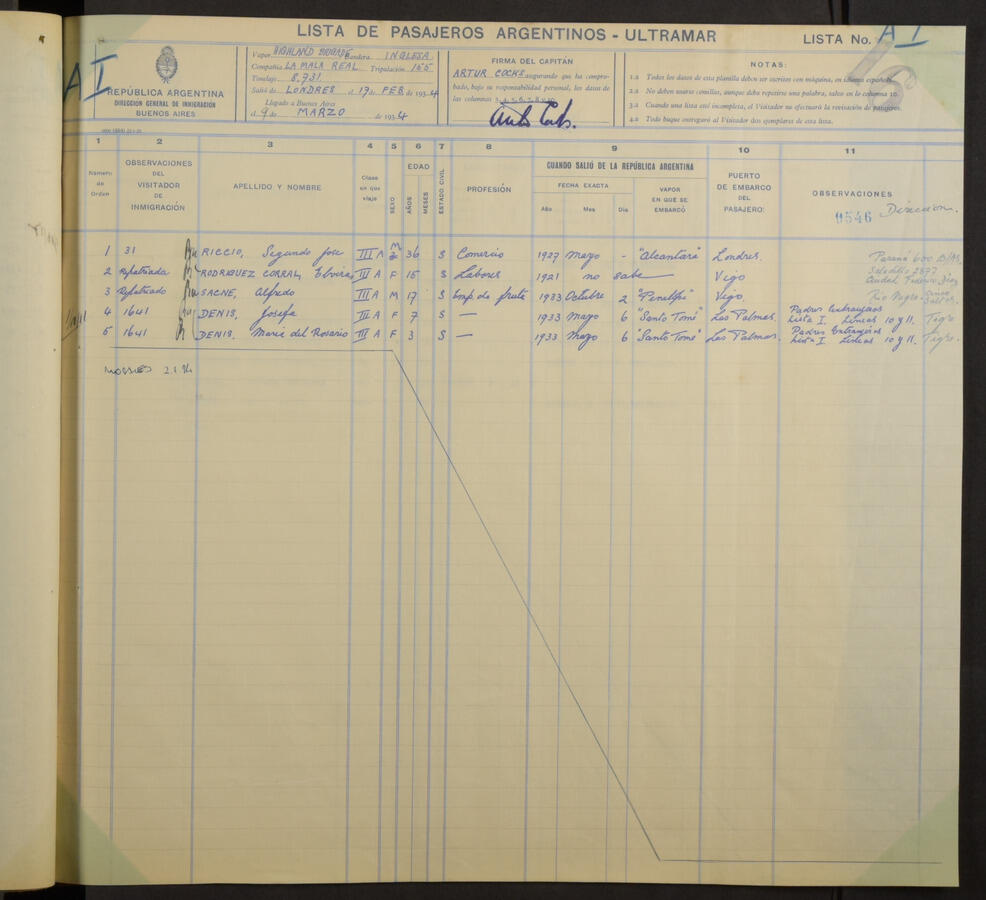 LISTA DE PASAJEROS ARGENTINOS - ULTRAMAR
LISTA No. A I
A I
REPÚBLICA ARGENTINA
DIRECCION GENERAL DE INMIGRACIÓN
BUENOS AIRES
Vapor HIGHLAND BRIGADE Bandera INGLESA
Compañía LA MALA REAL Tripulación 155
Tonelaje 8.731
Salió de LONDRES el 17 de FEB de 1934
Llegado a Buenos Aires
el 9 de MARZO de 1934
FIRMA DEL CAPITAN
ARTUR COCKS asegurando que ha comprobado,
bajo su responsabilidad personal, los datos de
las columnas 3, 4, 5, 6, 7, 8, 9, 10.
NOTAS:
1.a Todos los datos de esta planilla deben ser escritos con máquina, en idioma español.
2.a No deben usarse comillas, aunque deba repetirse una palabra, salvo en la columna 10.
3.a Cuando una lista esté incompleta, el Visitador no efectuará la revisación de pasajeros.
4.a Todo buque entregará al Visitador dos ejemplares de esta lista.
1 2 3 4 5 6 7 8 9 10 11
Número de Orden
OBSERVACIONES DEL VISITADOR DE INMIGRACIÓN
APELLIDO Y NOMBRE
Clase en que viaja
SEXO
EDAD
AÑOS
MESES
ESTADO CIVIL
PROFESIÓN
CUANDO SALIÓ DE LA REPÚBLICA ARGENTINA
FECHA EXACTA
Año Mes Dia
VAPOR EN QUE SE EMBARCÓ
PUERTO DE EMBARCO DEL PASAJERO:
OBSERVACIONES
0546 Direccion.
1 31 RICCIO, Segundo Jose III A M 36 S Comercio 1927 Mayo - "Alcantara" Londres. Paraná 600 B/As.
2 Repatriada RODRIGUEZ CORRAL, Elvira III A F 15 S Labores 1921 no sabe Vigo Saladillo 2877
3 Repatriado SACNE, Alfredo III A M 17 S Emp. de frute 1933 Octubre 2 Vigo. Rio Negro
4 1641 DENIS, Josefa III A F 7 S — 1933 Mayo 6 "Santo Tomé" Las Palmas. Padres Extranjeros Lista I. Lineas 10 y 11. Tigre
5 1641 DENIS, Maria del Rosario III A F 3 S — 1933 Mayo 6 "Santo Tomé" Las Palmas. Padres Extranjeros Lista I Lineas 10 y 11. Tigre.